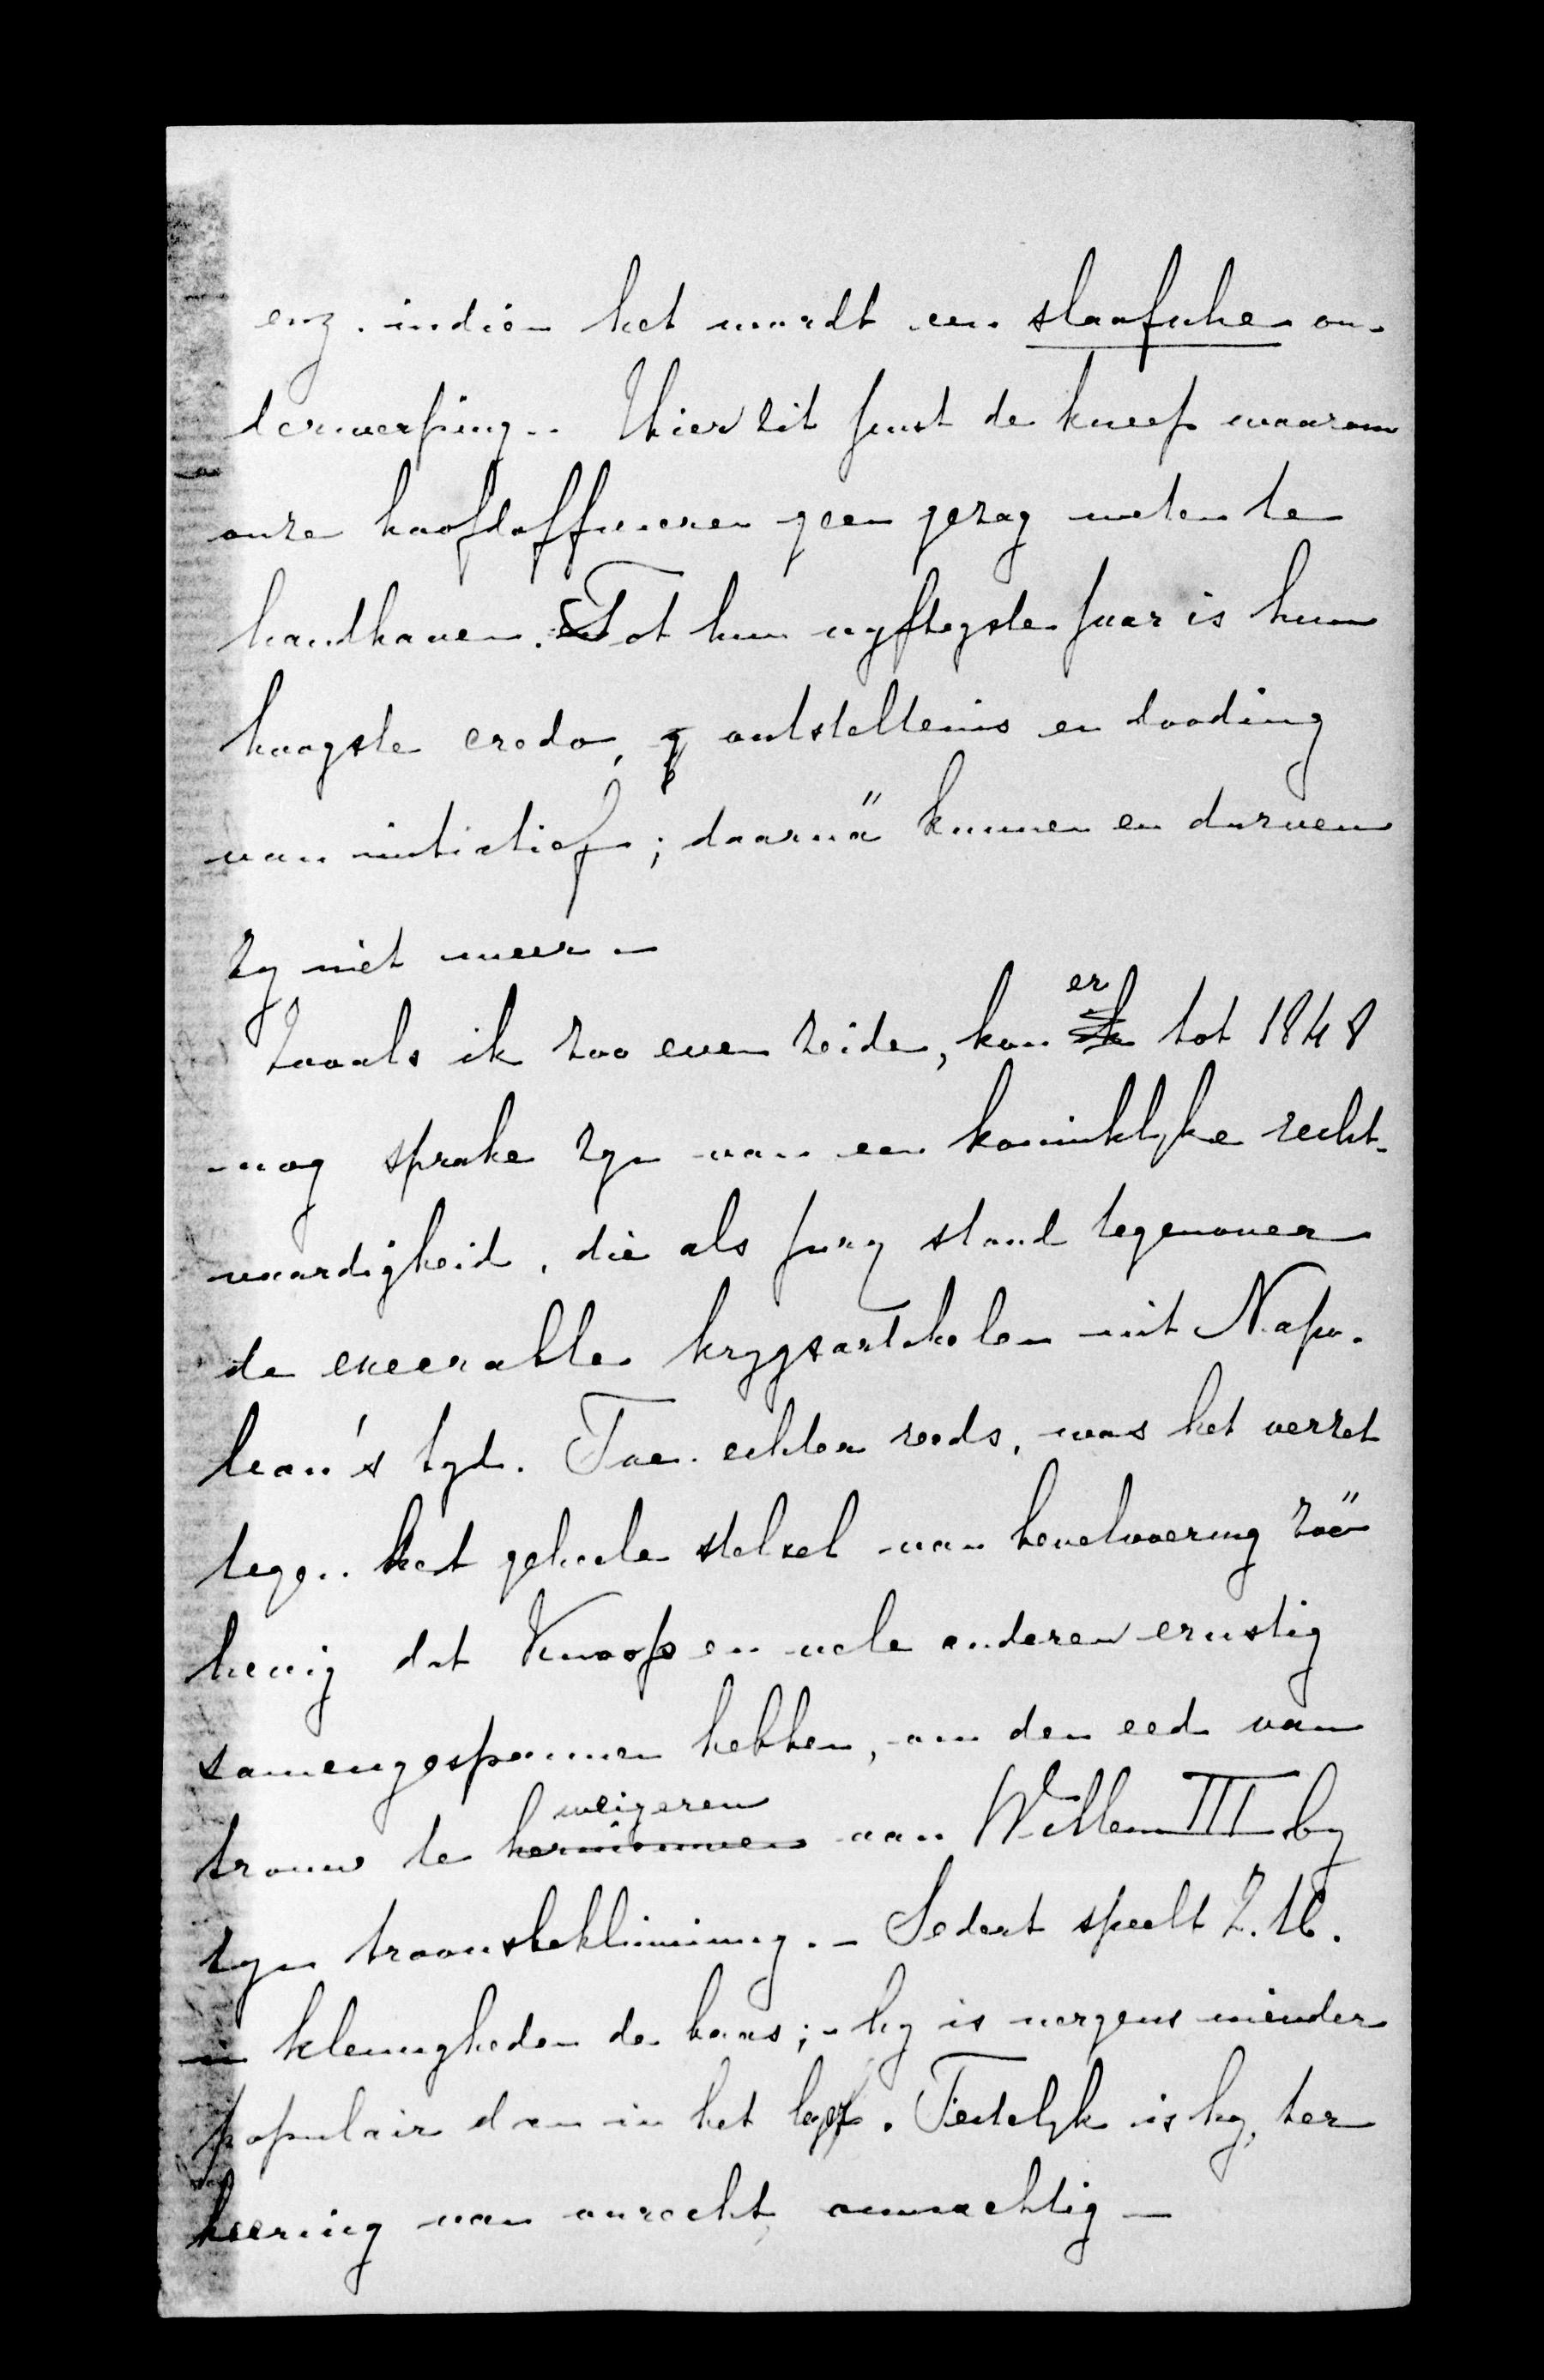 enz. indien het wordt een slaafsche on-
derwerping.- Hier zit juist de kneep waarom
onze hoofdofficieren geen gezag weten te
handhaven. Tot hun vyftigste jaar is hun
hoogste credo, ontsteltenis en dooding
van initiatief; daarnä kunnen en durven
zy niet meer -
Zooals ik zoo even zeide, kon er tot 1848
nog sprake zyn van een koninklyke recht-
vaardigheid, die als jury stond tegenover
de execrable krygsartikelen uit Napo-
leon's tyd. Toen echter reeds, was het verzet
tegen het geheele stelsel van bevelvoering zoö
hevig dat Knoop en vele anderen ernstig
samengespannen hebben, om den eed van
trouw te weigeren aan Willem III by
zyn troonsbeklimming. - Sedert speelt Z. M.
in kleinigheden de baas; - hy is nergens minder
populair dan in het leger. Feitelyk is hy, ter
keering van onrecht, onmachtig -